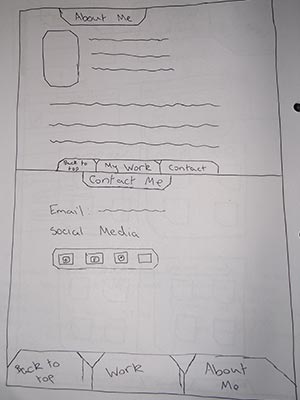 About Me
Back to
top
My Work
Contact
Contact Me
Email:
Social Media
Back to
top
Work
About
Me